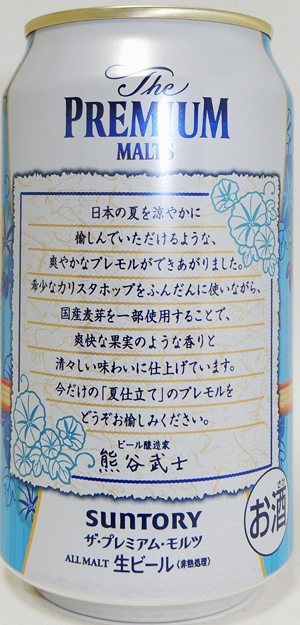 The
PREMIUM
MALT'S
日本の夏を涼やかに
愉しんでいただけるような、
爽やかなプレモルができあがりました。
希少なカリスタホップをふんだんに使いながら、
国産麦芽を一部使用することで、
爽快な果実のような香りと
清々しい味わいに仕上げています。
今だけの「夏仕立て」のプレモルを
どうぞお愉しみください。
ビール醸造家
熊谷武士
SUNTORY
ザ・プレミアム・モルツ
ALL MALT 生ビール〈非熱処理〉
お酒